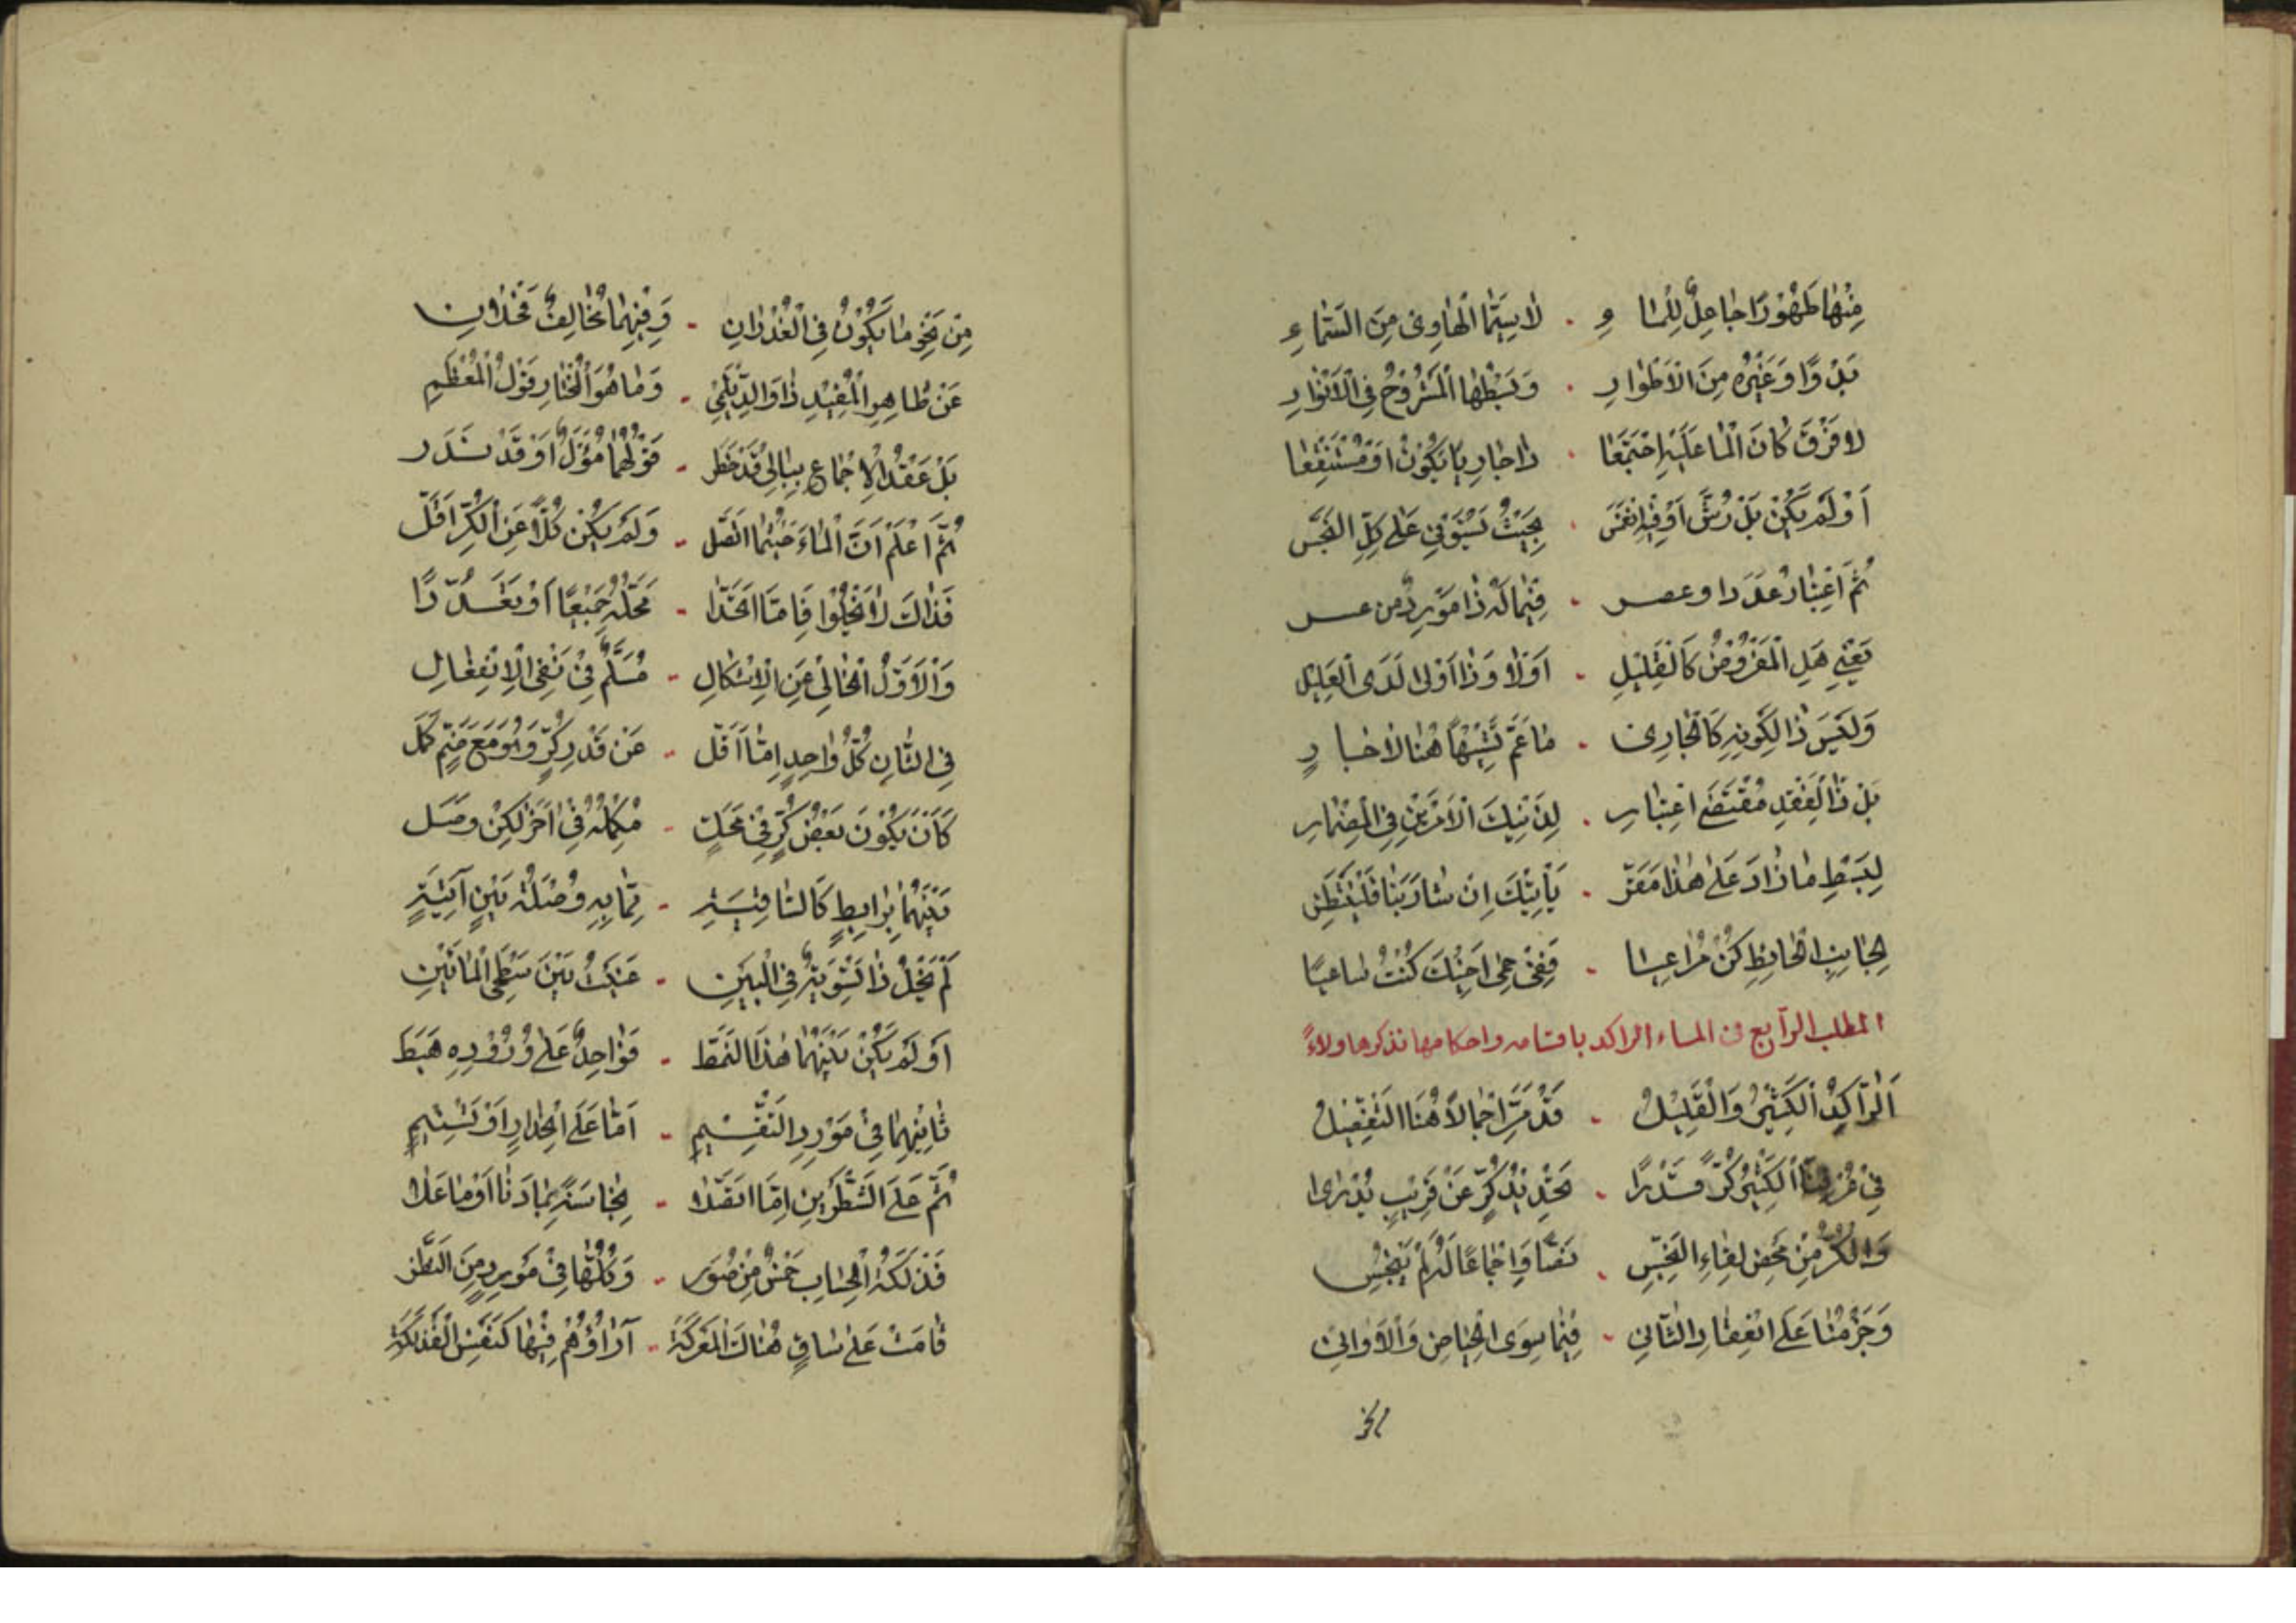 مِنْهَا طَهُورًا جَاعِلٌ لِلْمَاءِ . لَا سِيَّمَا الْهَاوِي مِنَ السَّمَاءِ
بَدْوًا وَغَيْرُهُ مِنَ الْأَطْوَارِ . وَبَسْطُهَا الْمَشْرُوحُ فِي الْأَنْوَارِ
لَا فَرْقَ كَانَ الْمَا عَلَيْهِ اجْتَمَعَا . ذَا جَارِيًا يَكُونُ أَوْ مُسْتَنْقِعَا
أَوْ لَمْ يَكُنْ بَلْ رُشَّ أَوْ فِيهِ انْغَمَسَ . بِحَيْثُ يَسْتَوْفِي عَلَى كُلِّ النَّجَسِ
ثُمَّ اعْتِبَارُ عَدَدٍ أو عصر . فِيمَا لَهُ ذَا مَوْرِدٌ من عسر
يَعْنِي هَلِ الْمَفْرُوضُ كَالْقَلِيلِ . أَوْ لَا وَذَا أَوْلَى لَدَى الْعَلِيلِ
وَلَيْسَ ذَا لِكَوْنِهِ كَالْجَارِي . مَا عَمَّ تَشْبِيهًا هُنَا لَا جَارِ
بَلْ ذَا لِفَقْدِ مُقْتَضَى اعْتِبَارِ . لِذَيْنِكَ الْأَمْرَيْنِ فِي الْمِضْمَارِ
لِبَسْطِ مَا زَادَ عَلَى هَذَا مَقَرّ . يَأْتِيكَ إِنْ شَا رَبُّنَا فَلْيُنْتَظَرْ
لِجَانِبِ الْحَائِطِ كُنْ مُرَاعِيَا . فَفِي حِمَى أَخِيكَ كُنْتَ سَاعِيًا
المطلب الرابع في الماء الراكد باقسامه واحكامها نذكرها ولاءً
اَلرَّاكِدُ الْكَثِيرُ وَالْقَلِيلُ . قَدْ مَرَّ إِجْمَالًا هُنَا التَّفْصِيلُ
فِي عُرْفِنَا الْكَثِيرُ كُرٌّ قَدْرًا . بَحْدِيدِ كُرٍّ عَنْ قَرِيبٍ يُدْرَى
وَالْكُرُّ مِنْ مَحْضِ لِقَاءِ النَّجِسِ . نَصًّا وَإِجْمَاعًا لَهُ لَمْ يَنْجُسِ
وَجَزْمُنَا عَلَى انْعِقَادِ الثَّانِي . فِيمَا سِوَى الْحِيَاضِ وَالْأَوَانِي
مِنْ نَحْوِ مَا يَكُونُ فِي الْغُدْرَانِ . وَفِيهِمَا مُخَالِفٌ فَخْذَانِ
عَنْ ظَاهِرِ الْمُفِيدِ ذَا وَالدَّيْلَمِي . وَمَا هُوَ الْمُخْتَارُ قَوْلُ الْمُعْظَمِ
بَلْ عَقْدُ الْإِجْمَاعِ بِبَالِي قَدْ خَطَر . قَوْلُهُمَا مُؤَوَّلٌ أَوْ قَدْ نَدَر
ثُمَّ اعْلَمْ أَنَّ الْمَاءَ حَيْثُمَا اتَّصَل . وَلَمْ يَكُنْ كُلًّا عَنِ الْكُرِّ أَقَلّ
فَذَاكَ لَا يَخْلُو فَإِمَّا اتَّحَدَا . مَحَلُّهُ جَمِيعًا أَوْ تَعَدَّدَا
وَالْأَوَّلُ الْخَالِي عَنِ الْإِشْكَالِ . مُسَلَّمٌ فِي نَفْيِ الْانْفِعَالِ
فِي الثَّانِ كُلُّ وَاحِدٍ إِمَّا أَقَل . عَنْ قَدْرِ كُرٍّ وَهُوَ مَعَ ضَمٍّ كَمَل
كَأَنْ يَكُونَ بَعْضُ كُرٍّ فِي مَحَلّ . مُكَمِّلُهُ فِي آخَرٍ لَكِنْ وَصَل
بَيْنَهُمَا بِرَابِطٍ كَالسَّاقِيَةِ . مِمَّا بِهِ وُصْلَةُ بَيْنِ آنِيَةٍ
لَمْ يَخْلُ ذَا تَسْوِيَةٌ فِي الْبَيْنِ . عَيْنُكَ بَيْنَ سَطْحَيِ الْمَائَيْنِ
أَوْ لَمْ يَكُنْ بَيْنَهُمَا هَذَا النَّمَط . فَوَاحِدٌ عَلَى وُرُودِهِ هَبَط
ثَانِيهِمَا فِي مَوْرِدِ التَّقْسِيمِ . أَمَّا عَلَى انْحِدَارٍ أَوْ تَسْنِيمِ
ثُمَّ عَلَى الشَّطْرَيْنِ إِمَّا اتَّفَقَا . نَجَاسَةٌ بِمَا دَنَا أَوْ مَا عَلَا
فَذْلَكَةُ الْحِسَابِ خَمْسٌ مِنْ صُوَر . وَكُلُّهَا فِي مَوْرِدٍ مِنَ النَّظَر
قَامَتْ عَلَى سَاقٍ هُنَاكَ الْمَعْرَكَةُ . آرَاؤُهُمْ فِيهَا كَنَفْسِ الْفَذْلَكَةِ